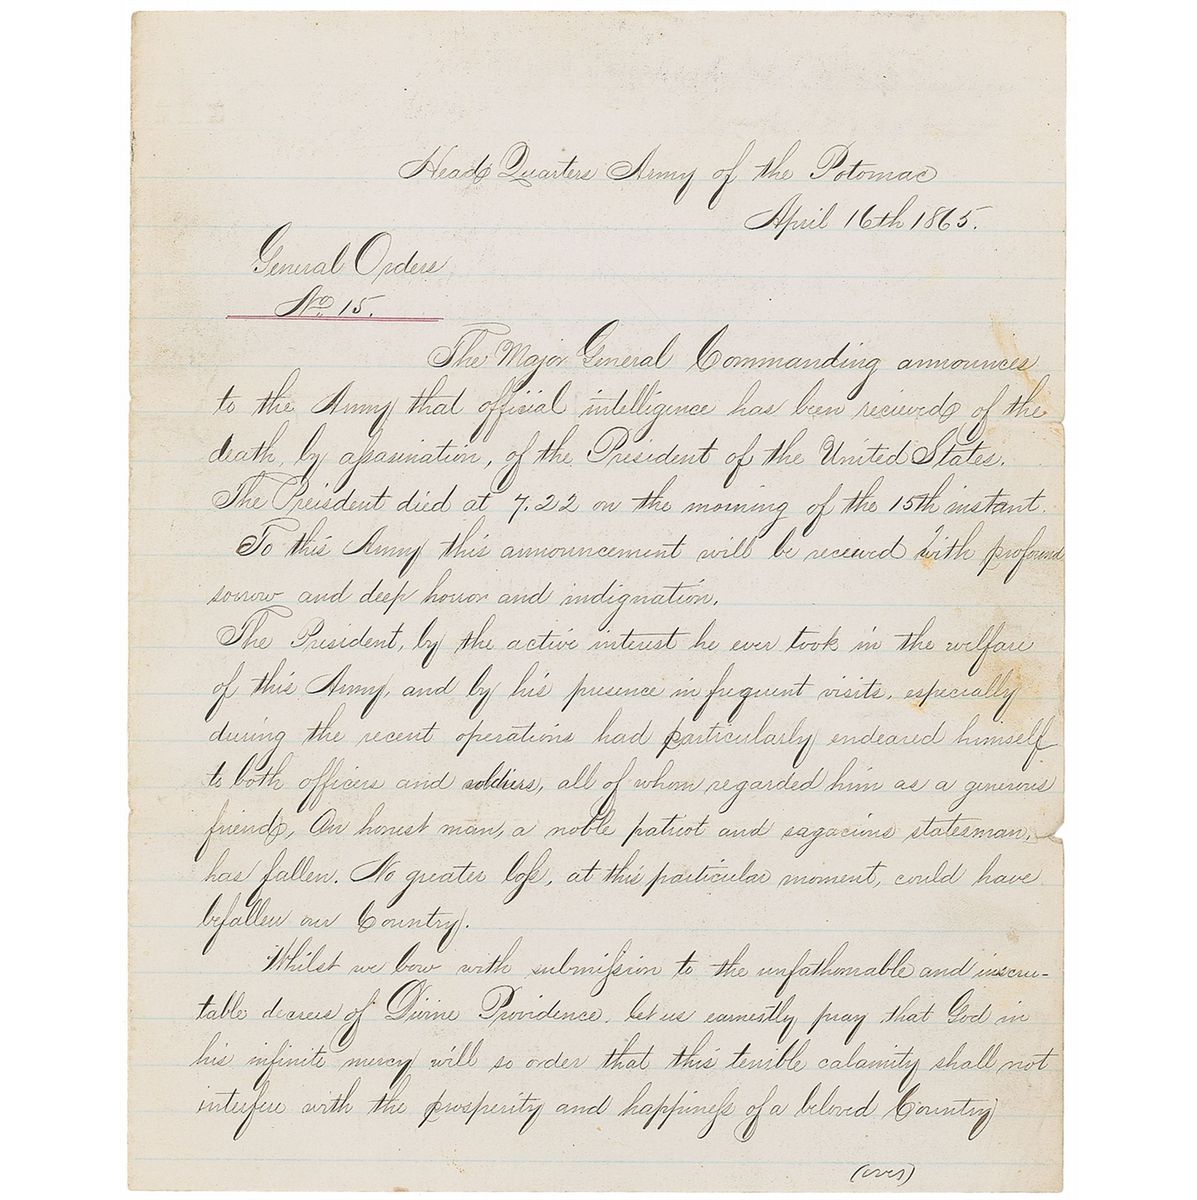 Head Quarters Army of the Potomac
April 16th 1865.
General Orders
No 15.
The Major General Commanding announces
to the Army that official intelligence has been recieved of the
death, by assasination, of the President of the United States.
The President died at 7.22 on the morning of the 15th instant.
To this Army this announcement will be received with profound
sorrow and deep horror and indignation.
The President, by the active interest he ever took in the welfare
of this Army, and by his presence in frequent visits, especially
during the recent operations had particularly endeared himself
to both officers and soldiers, all of whom regarded him as a generous
friend, An honest man, a noble patriot and sagacious statesman,
has fallen. No greater loss, at this particular moment, could have
befallen our Country.
Whilst we bow with submission to the unfathomable and inscru-
table decrees of Divine Providence, let us earnestly pray that God in
his infinite mercy will so order that this terrible calamity shall not
interfere with the prosperity and happiness of a beloved Country
(over)